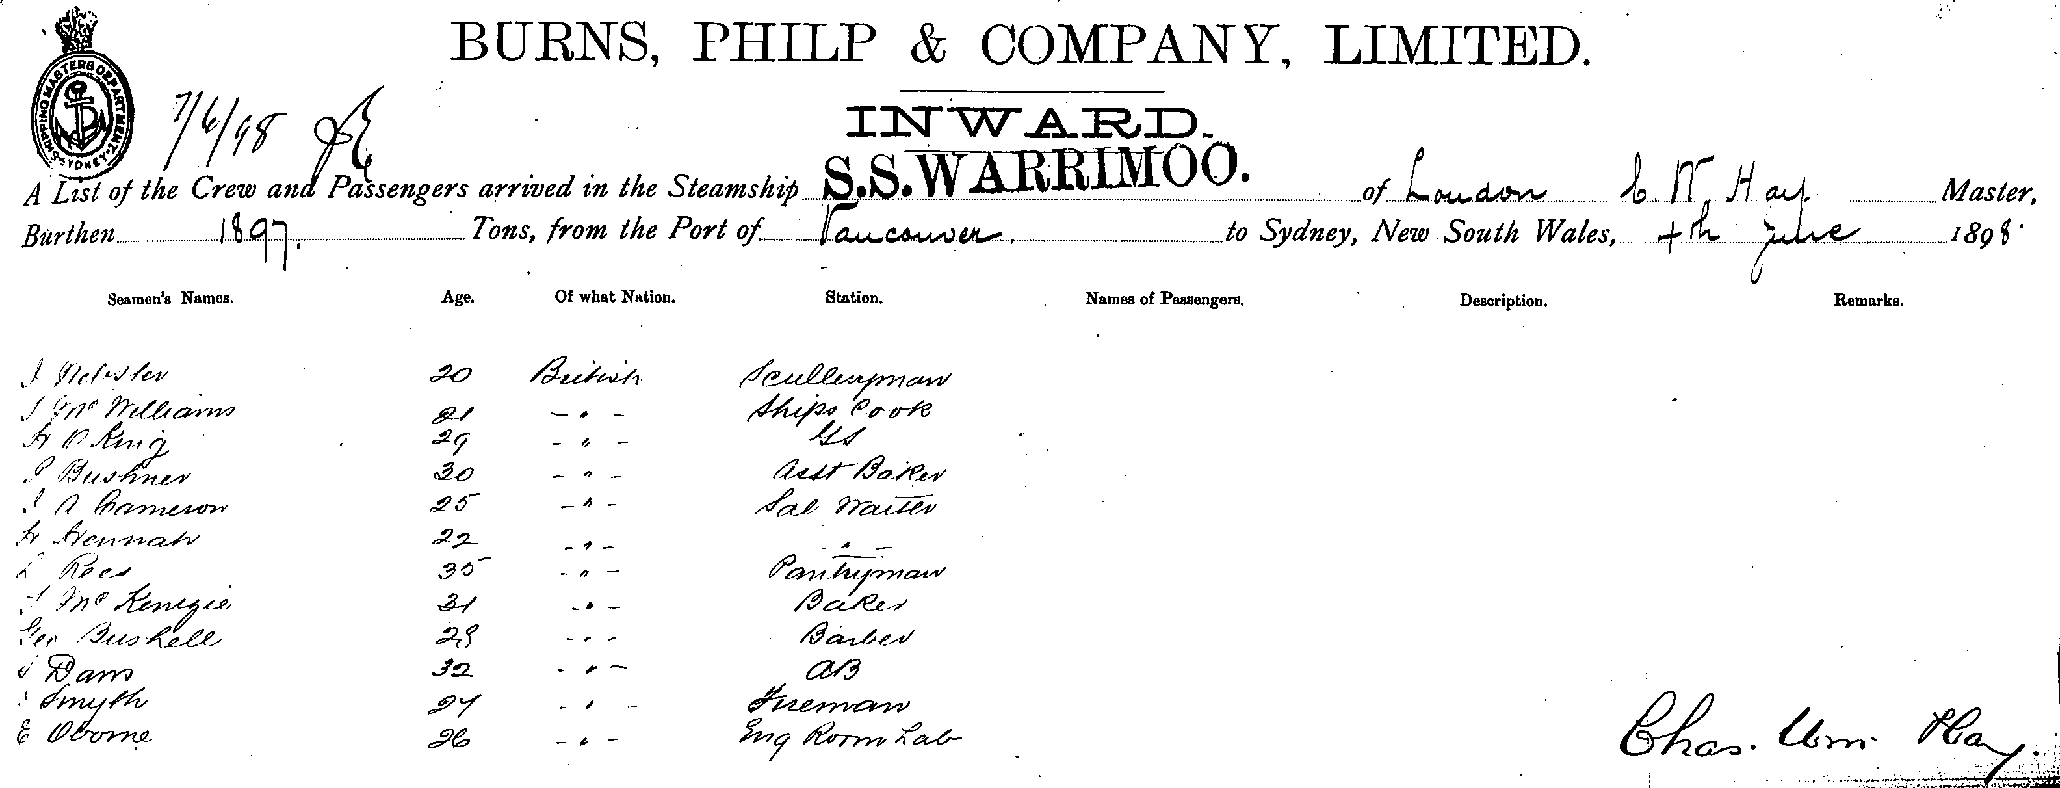 BURNS, PHILP & COMPANY, LIMITED.
SHIPPING MASTERS DEPARTMENT SYDNEY
7/6/98
INWARD.
A List of the Crew and Passengers arrived in the Steamship S.S. WARRIMOO. of London C W. Hay Master,
Burthen 1897. Tons, from the Port of Vancouver. to Sydney, New South Wales, 7th June 1898
Seamen's Names. Age. Of what Nation. Station. Names of Passengers. Description. Remarks.
J Webster 20 British Sculleryman
J McWilliams 21 - " - Ships Cook
H P King 29 - " - GS
P Bushner 30 - " - Asst Baker
J A Cameron 25 - " - Sal Waiter
H Hennah 22 - " - - " -
Rees 35 - " - Pantryman
J McKenzie 31 - " - Baker
Geo Bushell 28 - " - Barber
Davis 32 - " - AB
Smyth 24 - " - Fireman
E Oborne 26 - " - Eng Room Lab
Chas. Wm. Hay.